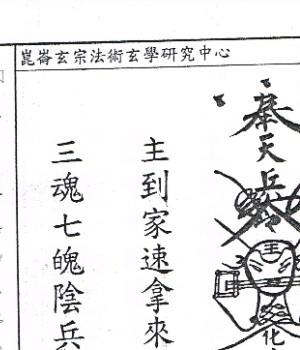 崑崙玄宗法術玄學研究中心
奉天兵
主到家速拿來
三魂七魄陰兵
化